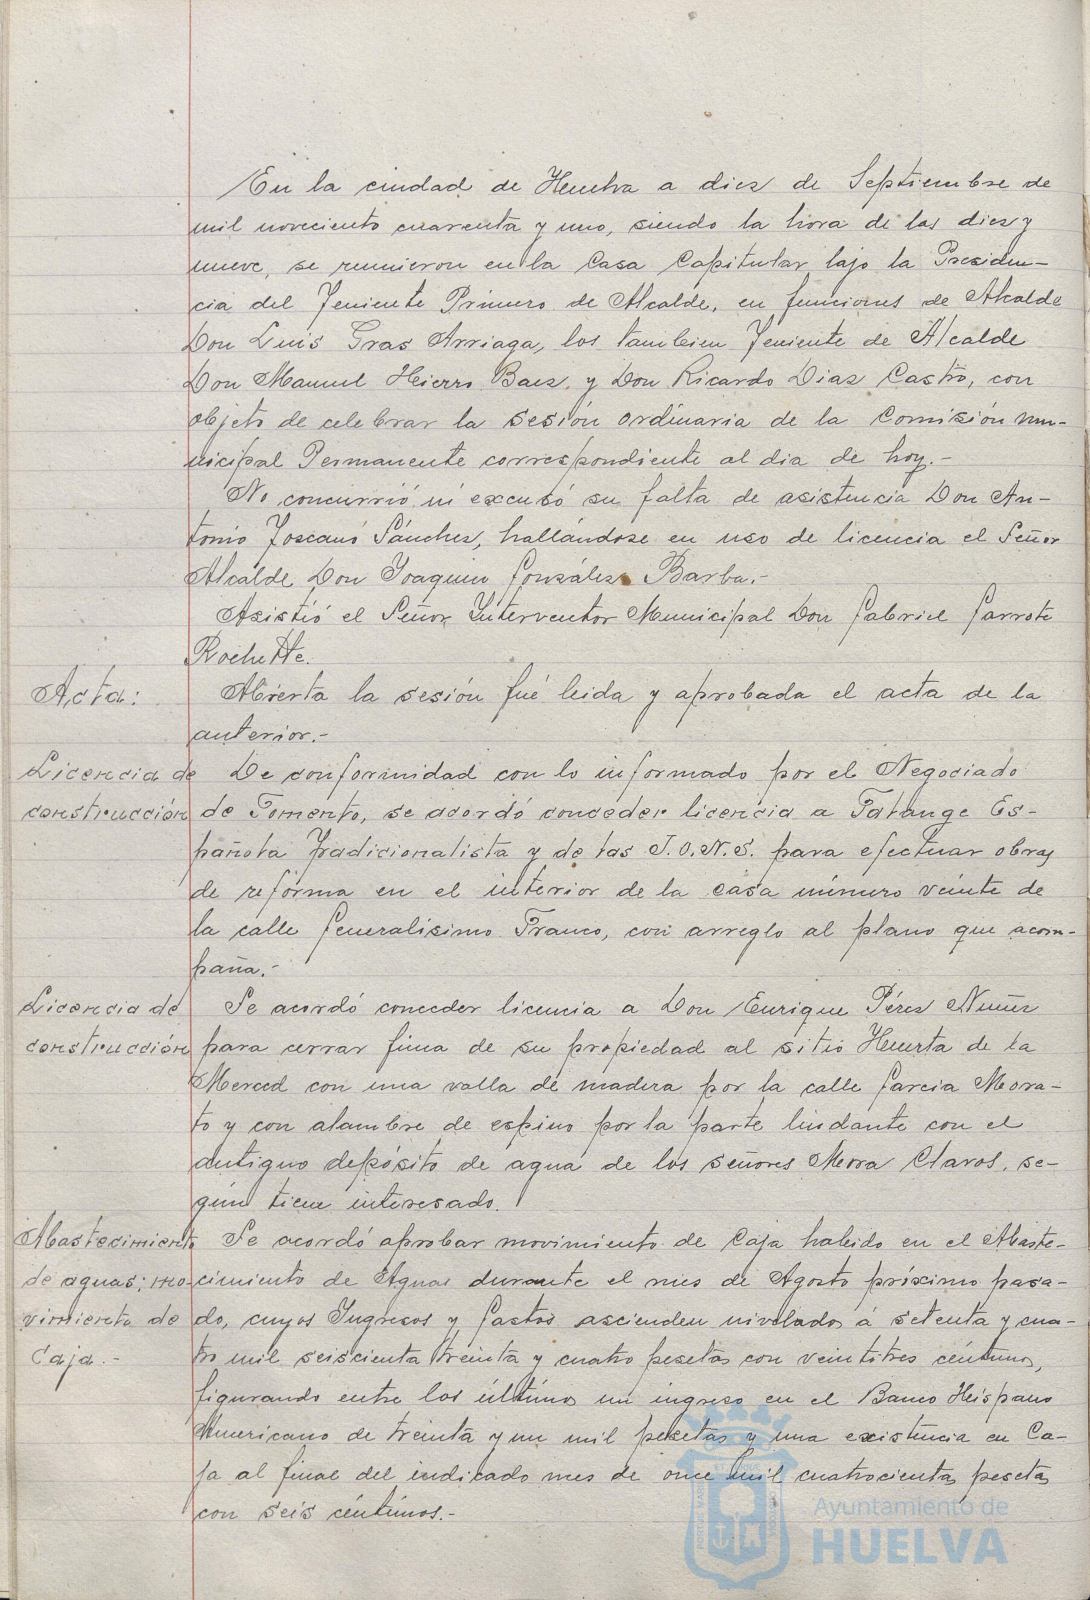 En la ciudad de Huelva a diez de Septiembre de
mil noveciento cuarenta y uno, siendo la hora de las diez y
nueve, se reunieron en la Casa Capitular bajo la Presiden-
cia del Teniente Primero de Alcalde, en funciones de Alcalde
Don Luis Gras Arriaga, los tambien Teniente de Alcalde
Don Manuel Hierro Baez, y Don Ricardo Diaz Castro, con
objeto de celebrar la sesión ordinaria de la Comisión mu-
nicipal Permanente correspondiente al dia de hoy.-
No concurrió ni excusó su falta de asistencia Don An-
tonio Toscano Sánchez, hallándose en uso de licencia el Señor
Alcalde Don Joaquin González Barba.-
Asistió el Señor Interventor Municipal Don Gabriel Garrote
Rochette.
Acta:
Abierta la sesión fué leida y aprobada el acta de la
anterior.-
Licencia de
construcción
De conformidad con lo informado por el Negociado
de Fomento, se acordó conceder licencia a Falange Es-
pañola Tradicionalista y de las J.O.N.S. para efectuar obras
de reforma en el interior de la casa número veinte de
la calle Generalisimo Franco, con arreglo al plano que acom-
paña.-
Licencia de
construcción
Se acordó conceder licencia a Don Enrique Pérez Nuñez
para cerrar finca de su propiedad al sitio Huerta de la
Merced con una valla de madera por la calle Garcia Mora-
to y con alambre de espino por la parte lindante con el
antiguo depósito de agua de los señores Mora Claros, se-
gún tiene interesado.
Abastecimiento
de aguas: mo-
vimiento de
Caja.-
Se acordó aprobar movimiento de Caja habido en el Abaste-
cimiento de Aguas durante el mes de Agosto próximo pasa-
do, cuyos Ingresos y Gastos ascienden nivelados á setenta y cua-
tro mil seiscienta treinta y cuatro pesetas con veintitres céntimos,
figurando entre los últimos un ingreso en el Banco Hispano
Americano de treinta y un mil pesetas y una existencia en Ca-
ja al final del indicado mes de once mil cuatrocientas pesetas
con seis céntimos.-
Ayuntamiento de
HUELVA